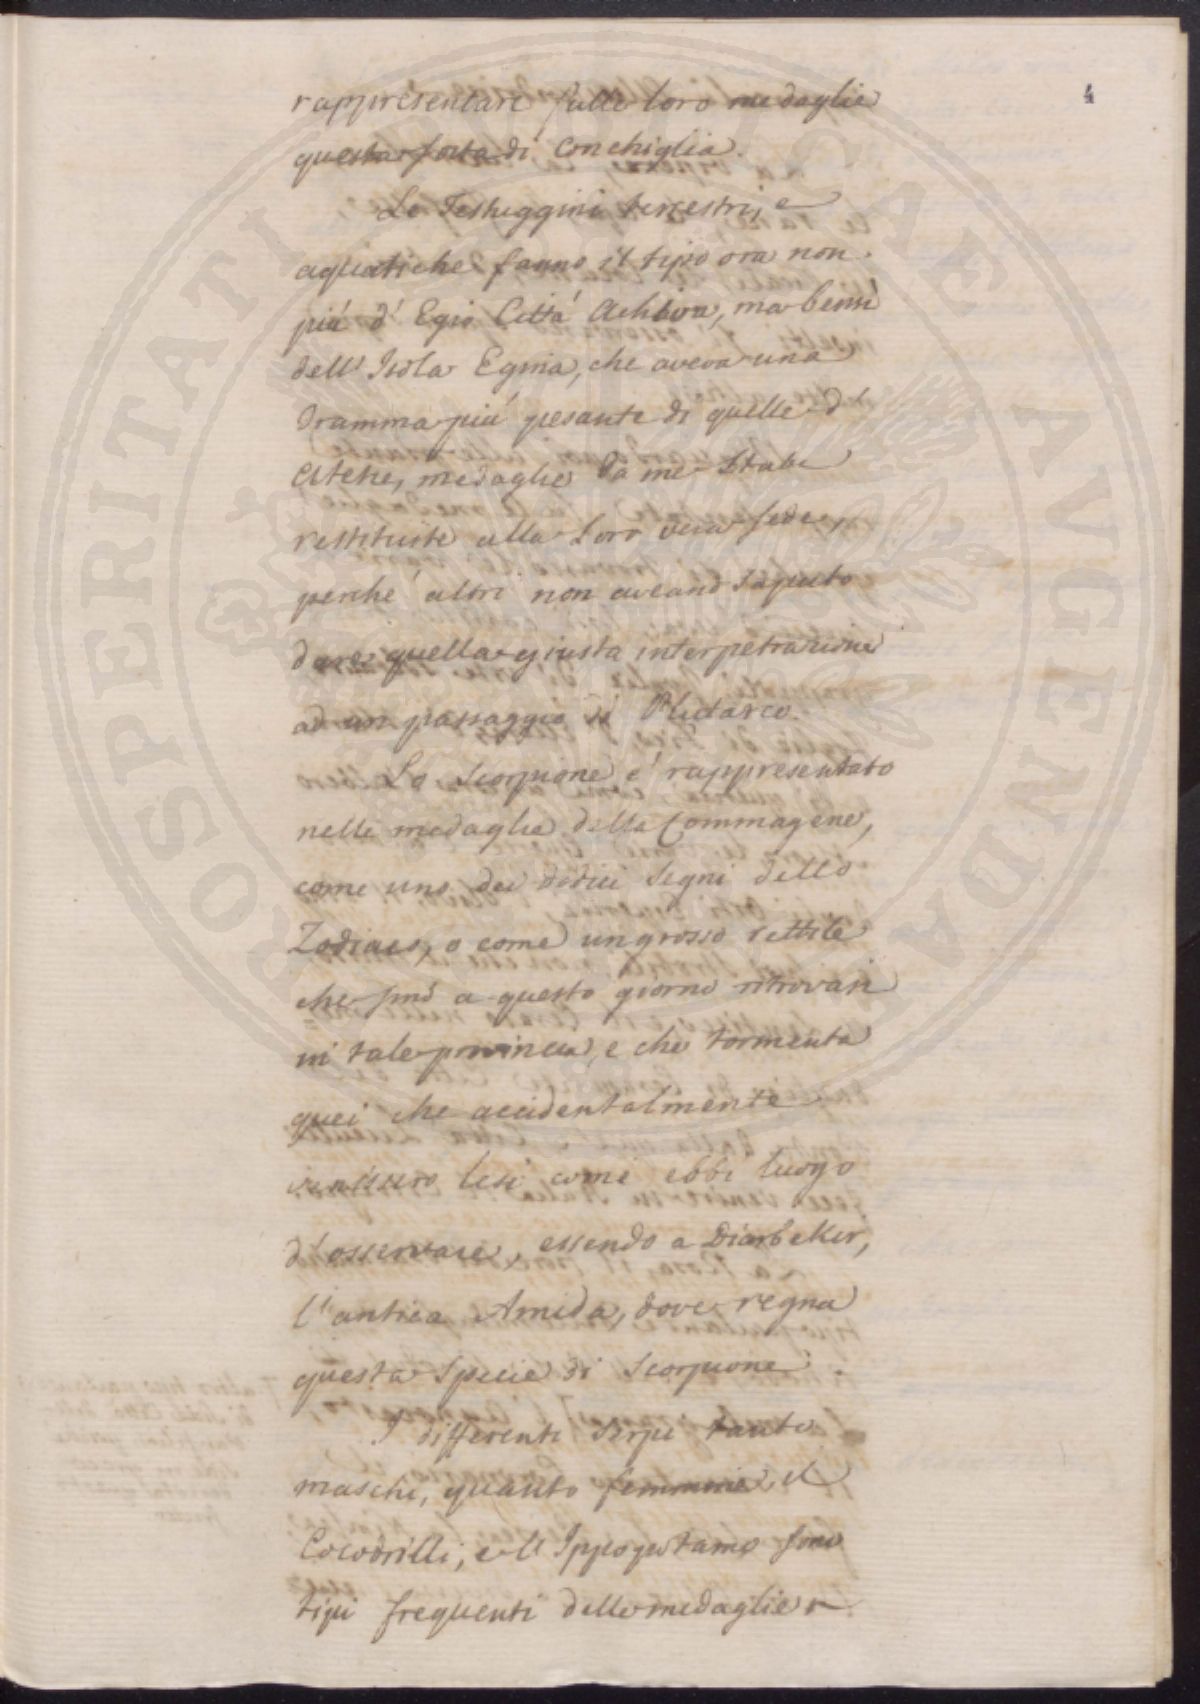 4
rappresentare sulle loro medaglie
questa sorta di Conchiglia.
Le Testuggini terrestri, e
aquatiche fanno il tipo ora non
piú d' Egio Cittá Achea, ma bensí
dell' Isola Egina, che aveva una
Dramma piú pesante di quelle d'
Atene, medaglie da me state
restituite alla loro vera sede,
perché altri non aveano saputo
dare quella giusta interpetrazione
ad un passaggio di Plutarco.
Lo Scorpione é rappresentato
nelle medaglie della Commagene,
come uno dei dodici Segni dello
Zodiaco, o come un grosso rettile
che sino a questo giorno ritrovasi
in tale provincia, e che tormenta
quei che accidentalmente
venissero lesi come ebbi luogo
d'osservare, essendo a Diarbeker,
l'antica Amida, dove regna
questa Specie di Scorpione.
I differenti Serpi tanto
maschi, quanto femmine, il
Cocodrilli, e l' Ippopotamo sono
tipi frequenti delle medaglie
SPERITATI PVBLICAE AVGENDAE